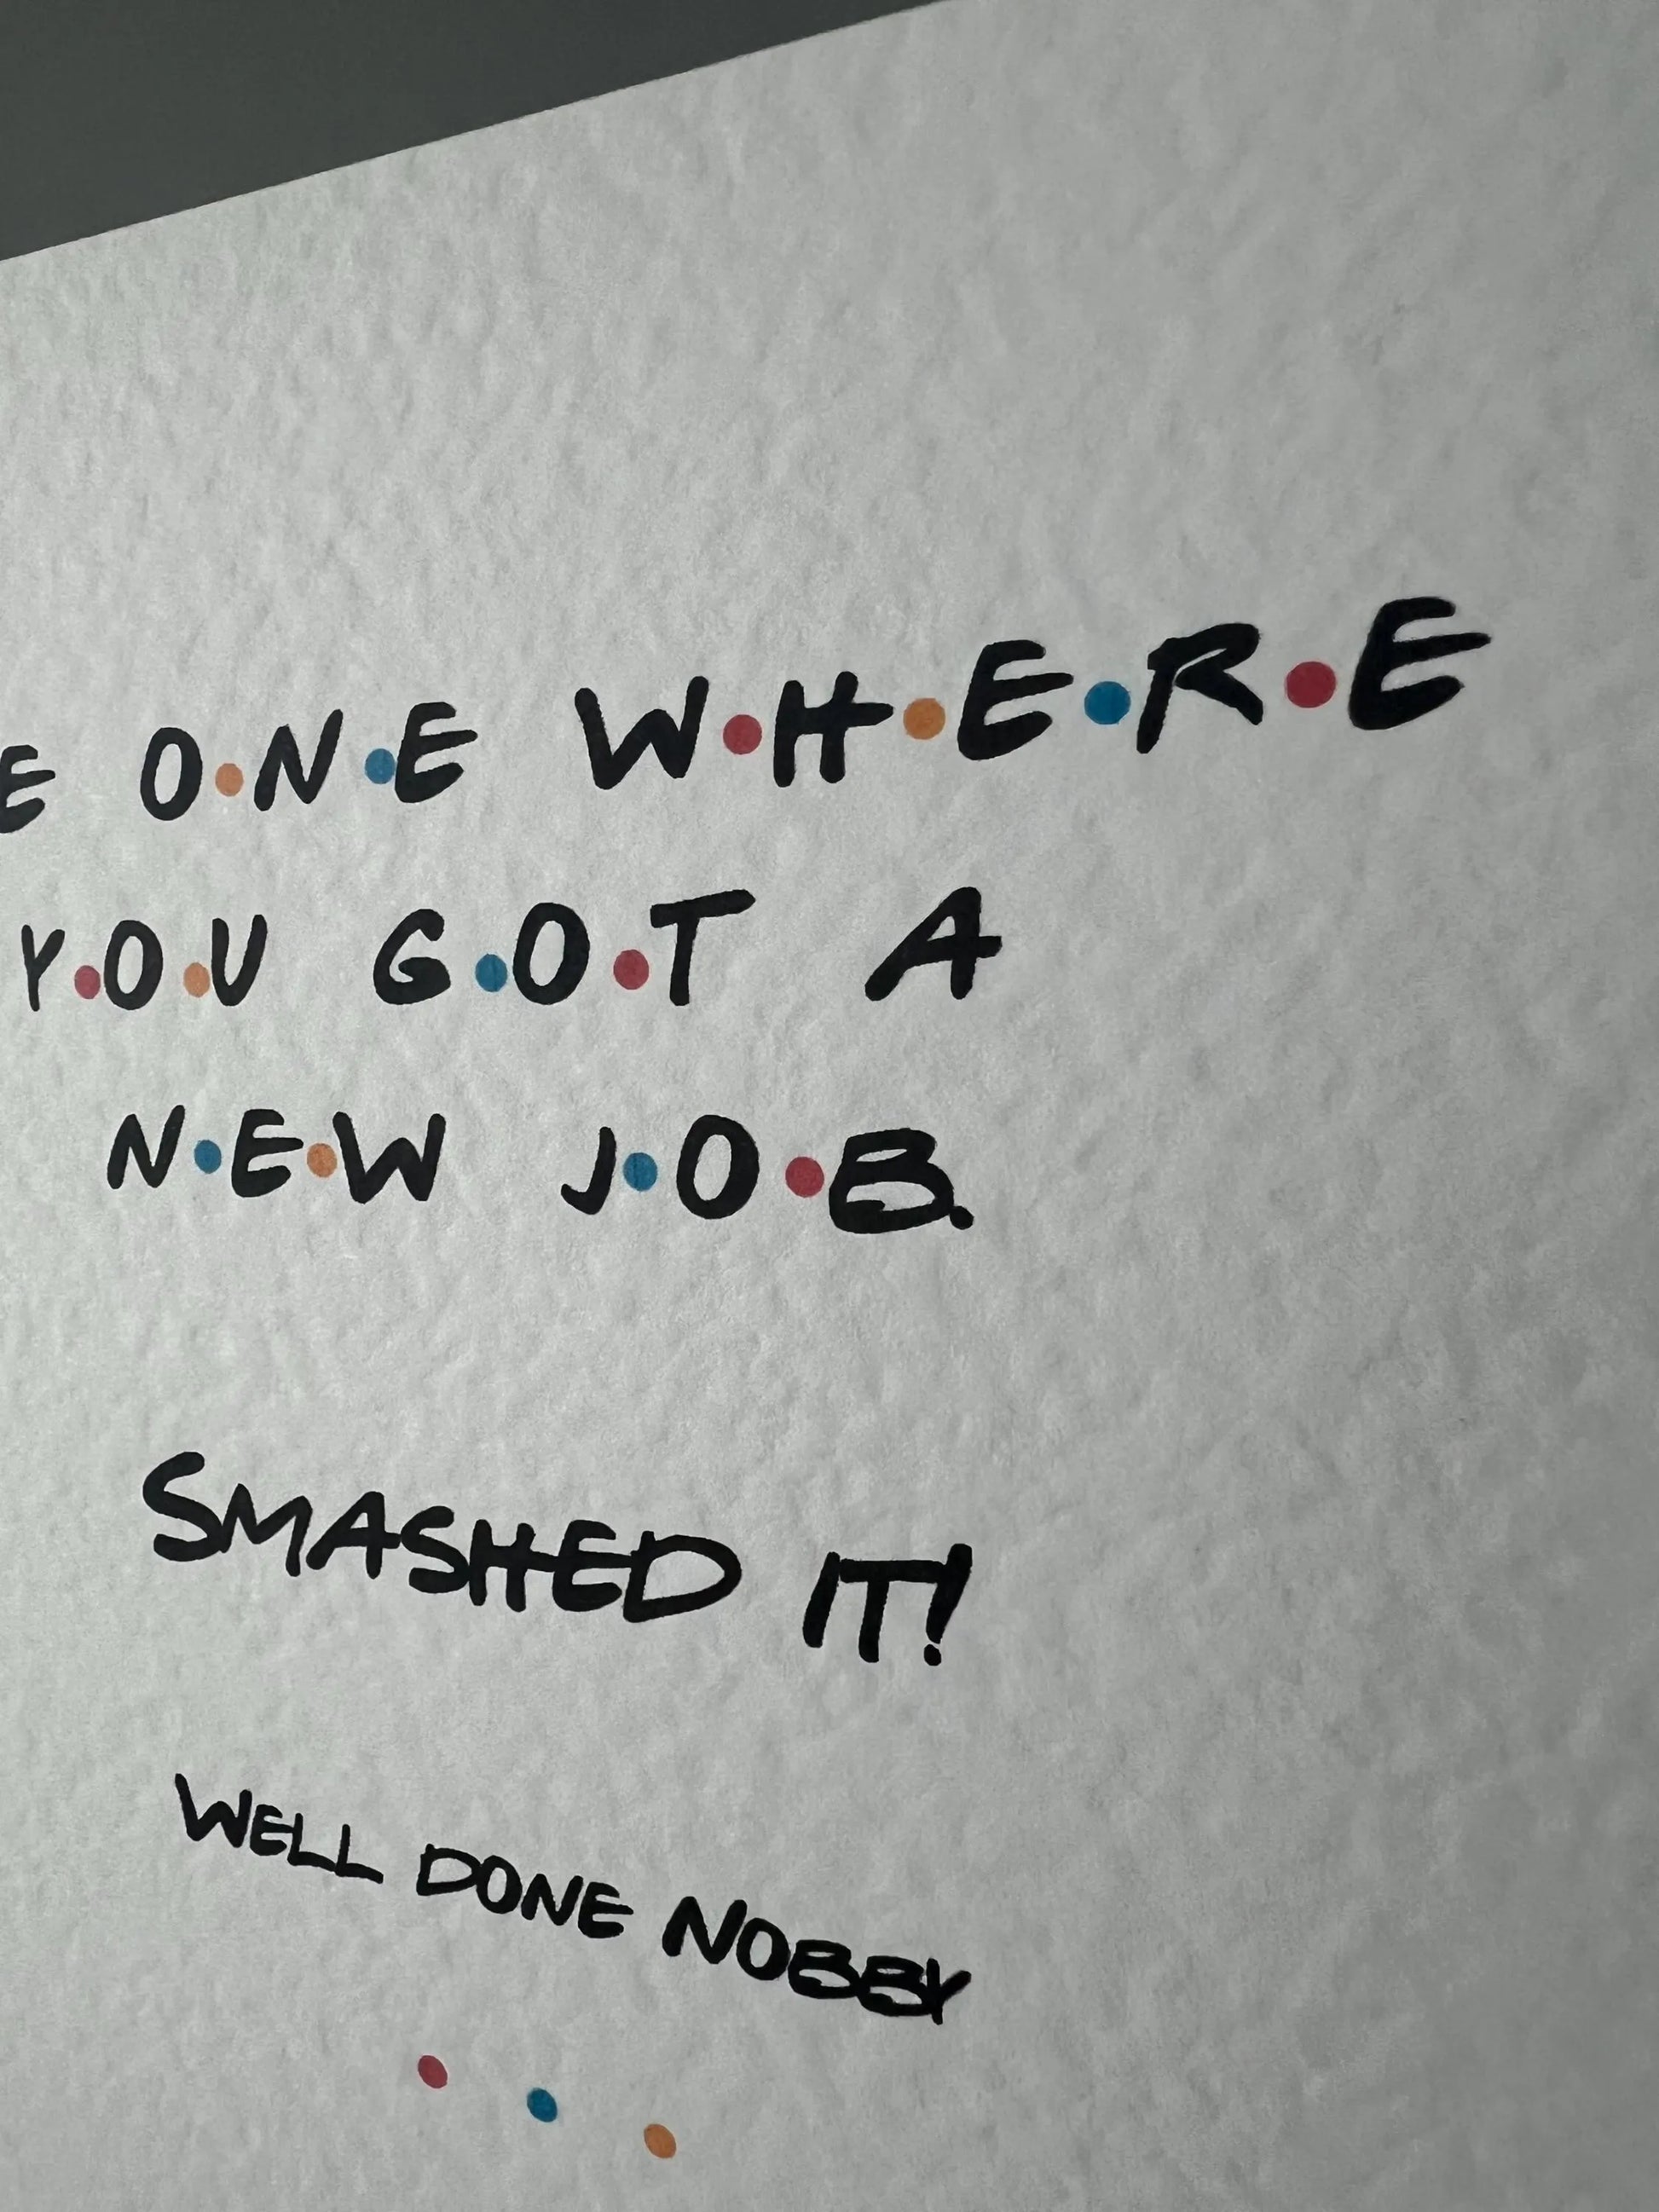 E O•N•E W•H•E•R•E
Y•O•U G•O•T A
N•E•W J•O•B.
SMASHED IT!
WELL DONE NOBBY